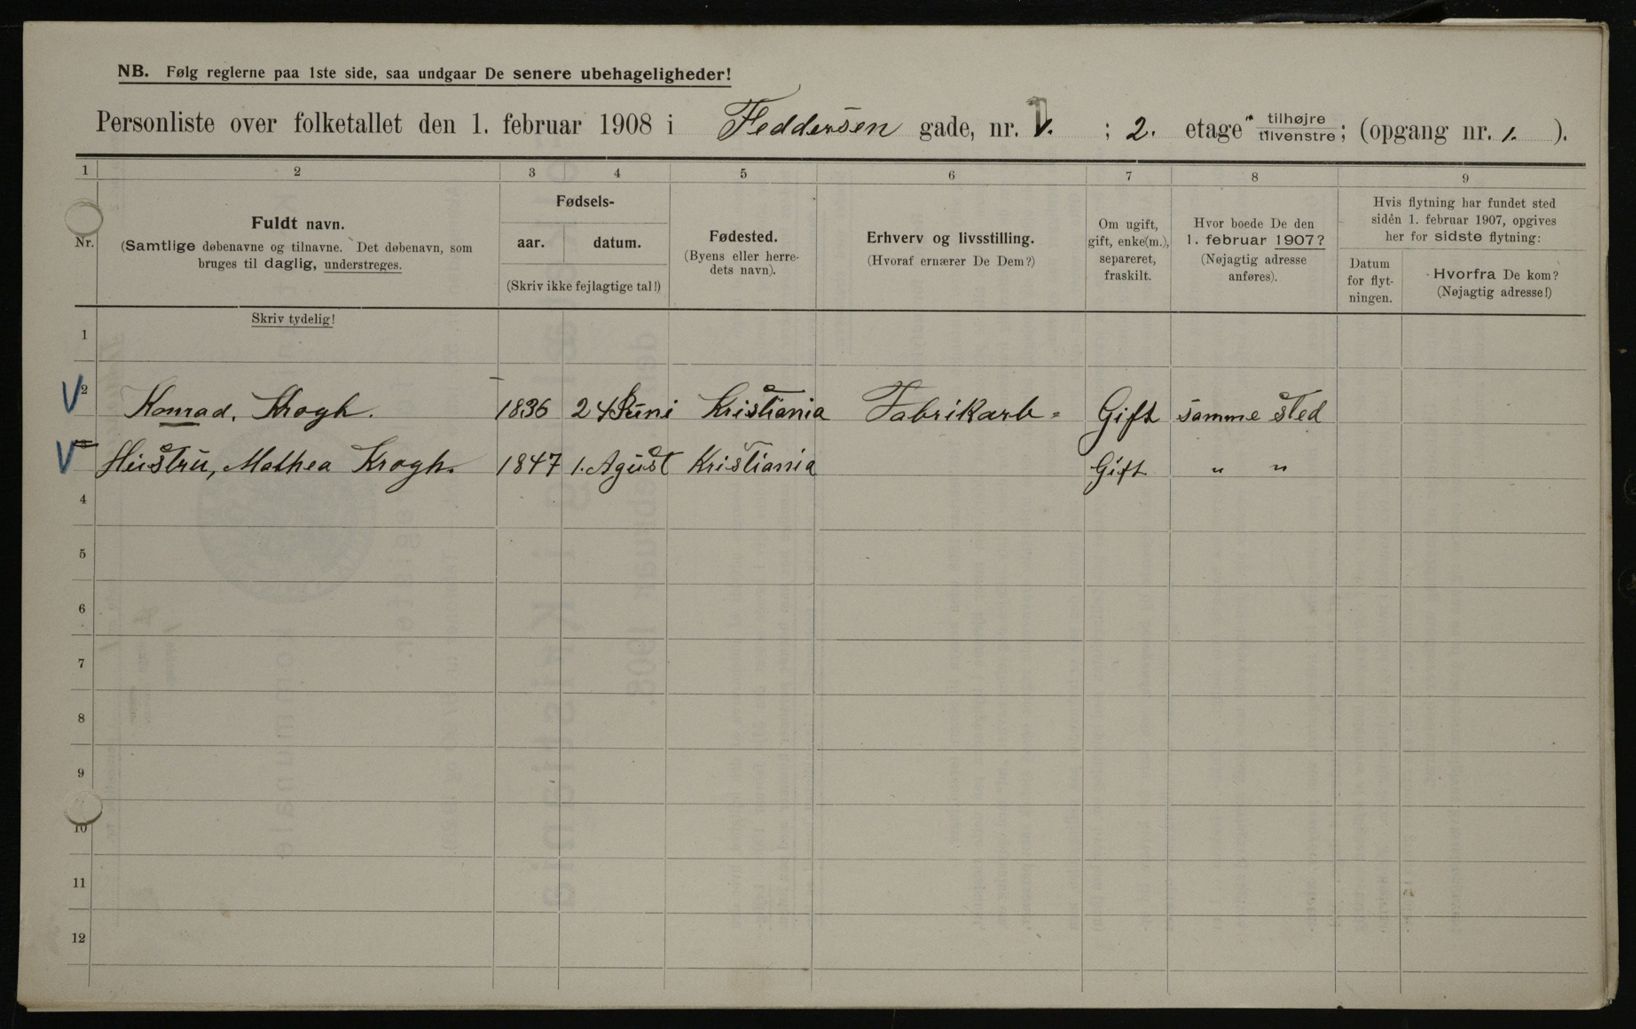 NB. Følg reglerne paa 1ste side, saa undgaar De senere ubehageligheder!
Personliste over folketallet den 1. februar 1908 i Feddersen gade, nr. 1. ; 2. etage tilhøjre tilvenstre; (opgang nr. 1. ).
1 2 3 4 5 6 7 8 9
Nr.
Fuldt navn.
(Samtlige døbenavne og tilnavne. Det døbenavn, som
bruges til daglig, understreges.
Skriv tydelig!
Fødsels-
aar. datum.
(Skriv ikke fejlagtige tal!)
Fødested.
(Byens eller herre-
dets navn).
Erhverv og livsstilling.
(Hvoraf ernærer De Dem?)
Om ugift,
gift, enke(m.),
separeret,
fraskilt.
Hvor boede De den
1. februar 1907?
(Nøjagtig adresse
anføres).
Hvis flytning har fundet sted
siden 1. februar 1907, opgives
her for sidste flytning:
Datum
for flyt-
ningen.
Hvorfra De kom?
(Nøjagtig adresse!)
1
2 Konrad, Krogh. 1836 24 Juni Kristiania Fabrikarb. Gift samme sted
Hustru, Mathea Krogh. 1847 1. Agust Kristiania Gift " "
4
5
6
7
8
9
10
11
12